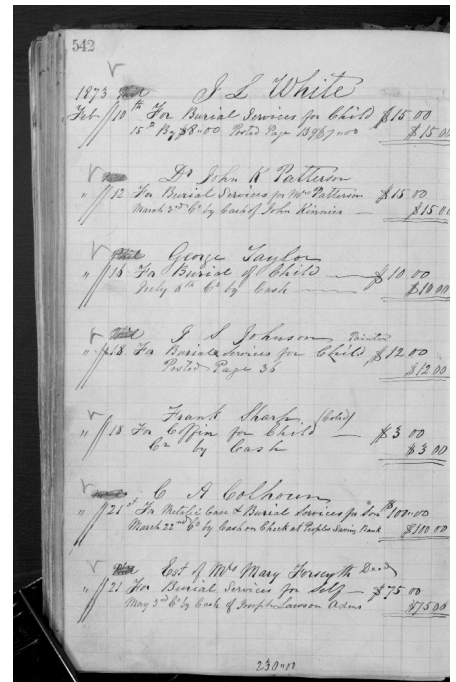 542
1873 J L White
Feb 10th For Burial Services for Child $15 00
15th By $8"00 Posted Page 139 $7"00 $15 00
Dr John K Patterson
" 12 For Burial Services for Mrs Patterson $15 00
March 3rd Cr by Cash of John Kinnier — $15 00
George Taylor
" 16 For Burial of Child — $10 00
July 8th Cr by Cash — $10.00
J S Johnson Painter
" 18 For Burial Services for Child $12 00
Posted Page 36 $12 00
Frank Sharp (Cold)
" 18 For Coffin for Child — $3 00
Cr by Cash $3 00
C A Colhoun
" 21st For Metalic Case & Burial Services for Son $100"00
March 22nd Cr by Cash on Check at Peoples Saving Bank $100.00
Est of Mrs Mary Forsyth Dead
" 21 For Burial Services for Self — $75 00
May 3rd Cr by Cash of Joseph Lawson Admr $75.00
230"00